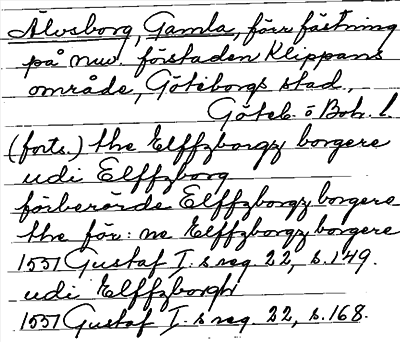 Älvsborg, Gamla, förr fästning
på nuv. förstaden Klippans
område, Göteborgs stad,
Göteb. o Boh. l.
(forts.) the Elffzborgz borgere
udi Elffzborg
förberörde Elffzborgz borgere
the för: ne Elffzborgz borgere
1551 Gustaf I:s reg. 22, s. 149.
udi Elffzborgh
1551 Gustaf I:s reg. 22, s. 168.